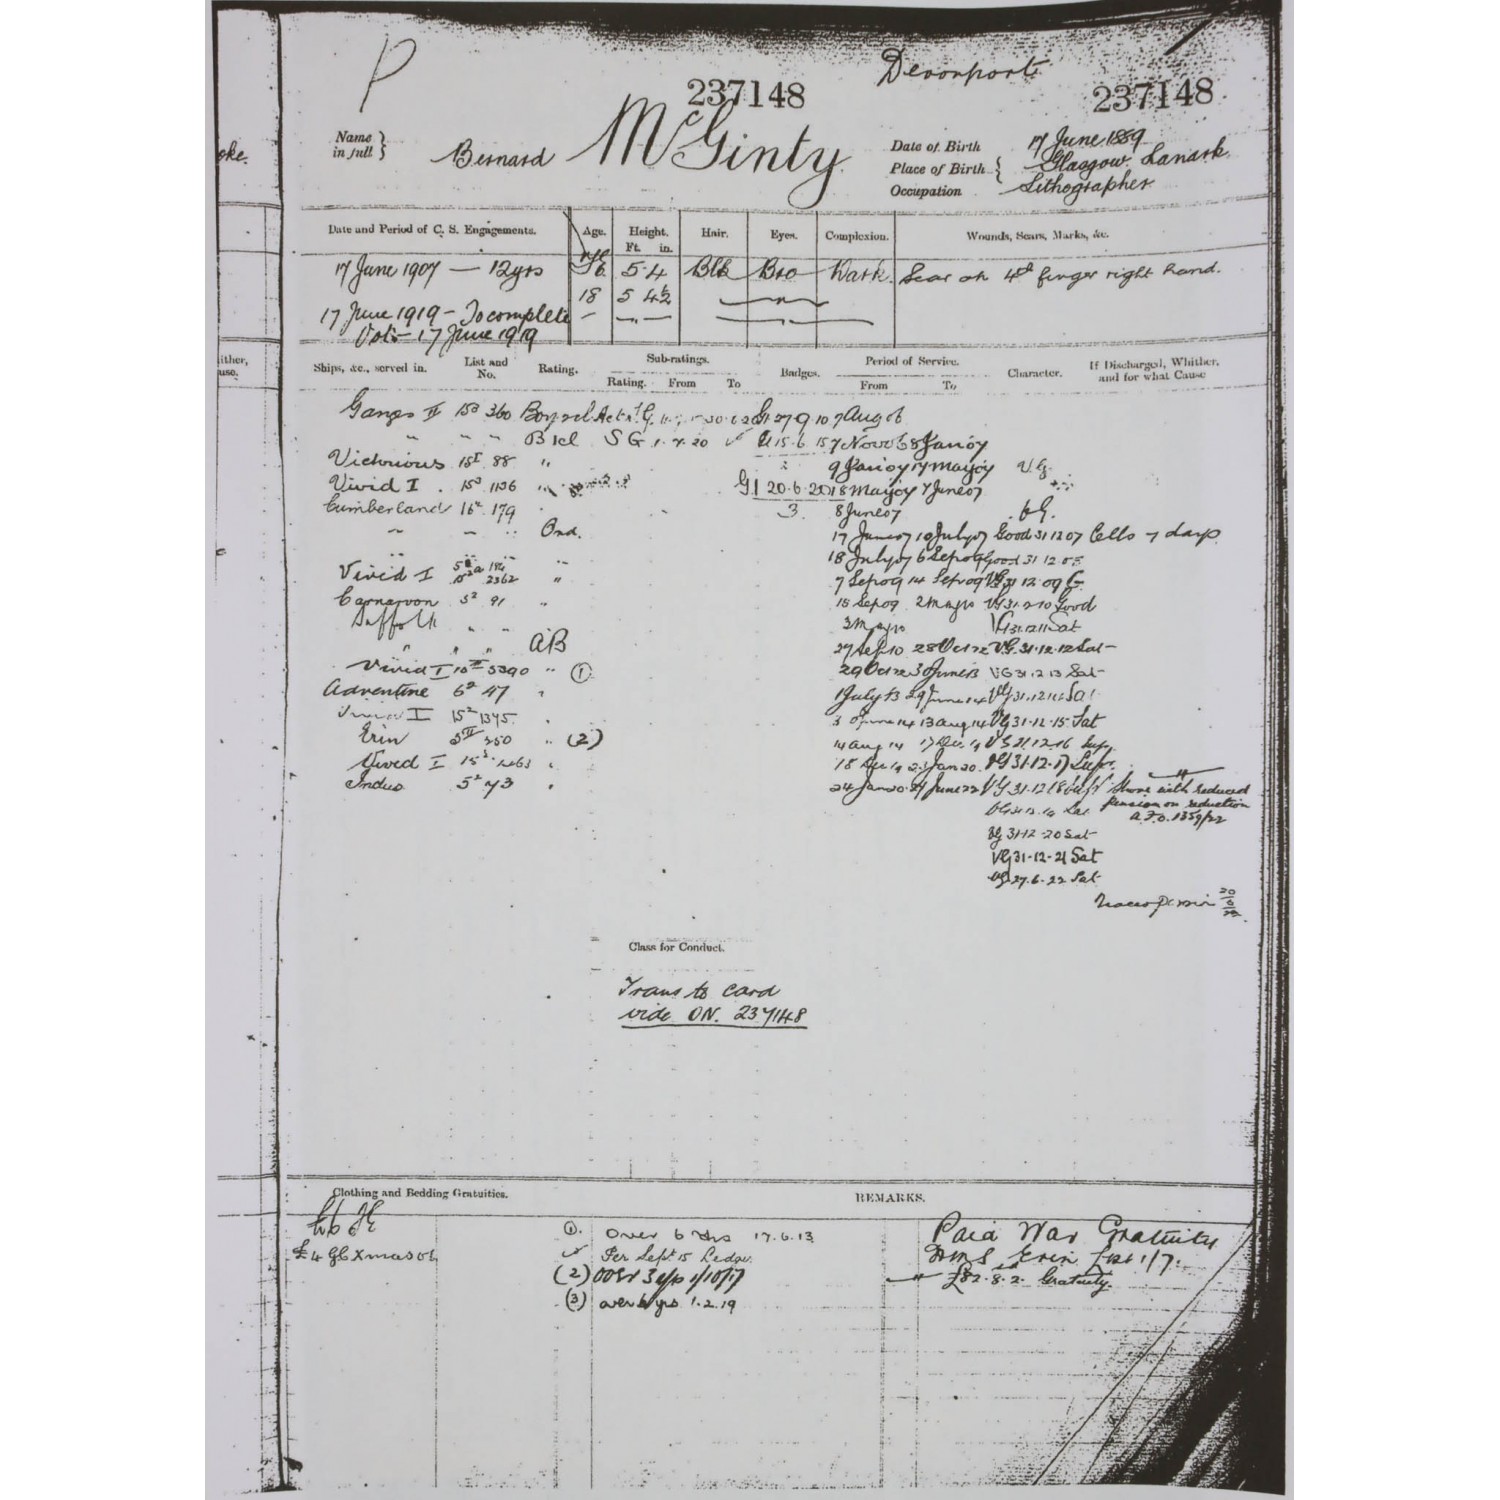 P
Devonport
237148 237148
Name in full } Bernard McGinty
Date of Birth 17 June 1889
Place of Birth { Glasgow Lanark
Occupation Lithographer
Date and Period of C. S. Engagements. Age. Height. Ft. in. Hair. Eyes. Complexion. Wounds, Scars, Marks, &c.
17 June 1907 — 12 yrs 16 5·4 Blk Bro Dark. Scar on 4th finger right hand.
18 5 4½
17 June 1919 - To complete
Vol: 17 June 1919
oke.
ither,
use.
Ships, &c., served in. List and No. Rating. Sub-ratings. Rating. From To Badges. Period of Service. From To Character. If Discharged, Whither, and for what Cause
Ganges II 15a 360 Boy 2 cl 7 Aug 06
" " " B 1cl SG 1·7·20 7 Nov 06 8 Jan 07
Victorious 15I 88 " 9 Jan 07 17 May 07 V.G.
Vivid I 15a 1136 G1 20·6·20 18 May 07 7 June 07
Cumberland 16a 179 3. 8 June 07 VG.
" " " Ord. 17 June 07 10 July 07 Good 31 12 07 Cells 7 days
" 18 July 07 6 Sep 09 Good 31 12 08
Vivid I 2362 " 7 Sep 09 14 Sep 09 VG 31 12 09 G
Carnarvon 5² 91 " 15 Sep 09 2 May 10 VG 31·12·10 Good
Suffolk " " 3 May 10 VG 31·12·11 Sat
" " " AB 27 Sep 10 28 Oct 12 VG. 31·12·12 Sat
Vivid I 15II 5390 " (1) 29 Oct 12 30 June 13 VG 31·12·13 Sat
Adventure 6² 47 " 1 July 13 29 June 14 VG 31·12·14 Sat
Vivid I 15² 1345 " 30 June 14 13 Aug 14 VG 31·12·15 Sat
Erin 5II 350 " (2) 14 Aug 14 17 Dec 19 VG 31·12·16 Supr
Vivid I " 18 Dec 19 23 Jan 20 VG 31·12·17 Supr
Indus 5² 73 " 24 Jan 20 27 June 22 VG 31·12·18 Shore with reduced
pension on reduction
A.F.O. 1359/22
VG 31·12·19 Sat
VG 31·12·20 Sat
VG 31-12-21 Sat
VG 27.6.22 Sat
Class for Conduct.
Trans to card
vide ON. 237148
Clothing and Bedding Gratuities. REMARKS.
① Over 6 yrs 17.6.13
✓ Per Sept 15 Ledgr
(2) over 3 yrs 1/10/17
(3) over 6 yrs 1.2.19
Paid War Gratuity
HMS Erin List 1/7.
" £82.8.2 Gratuity.